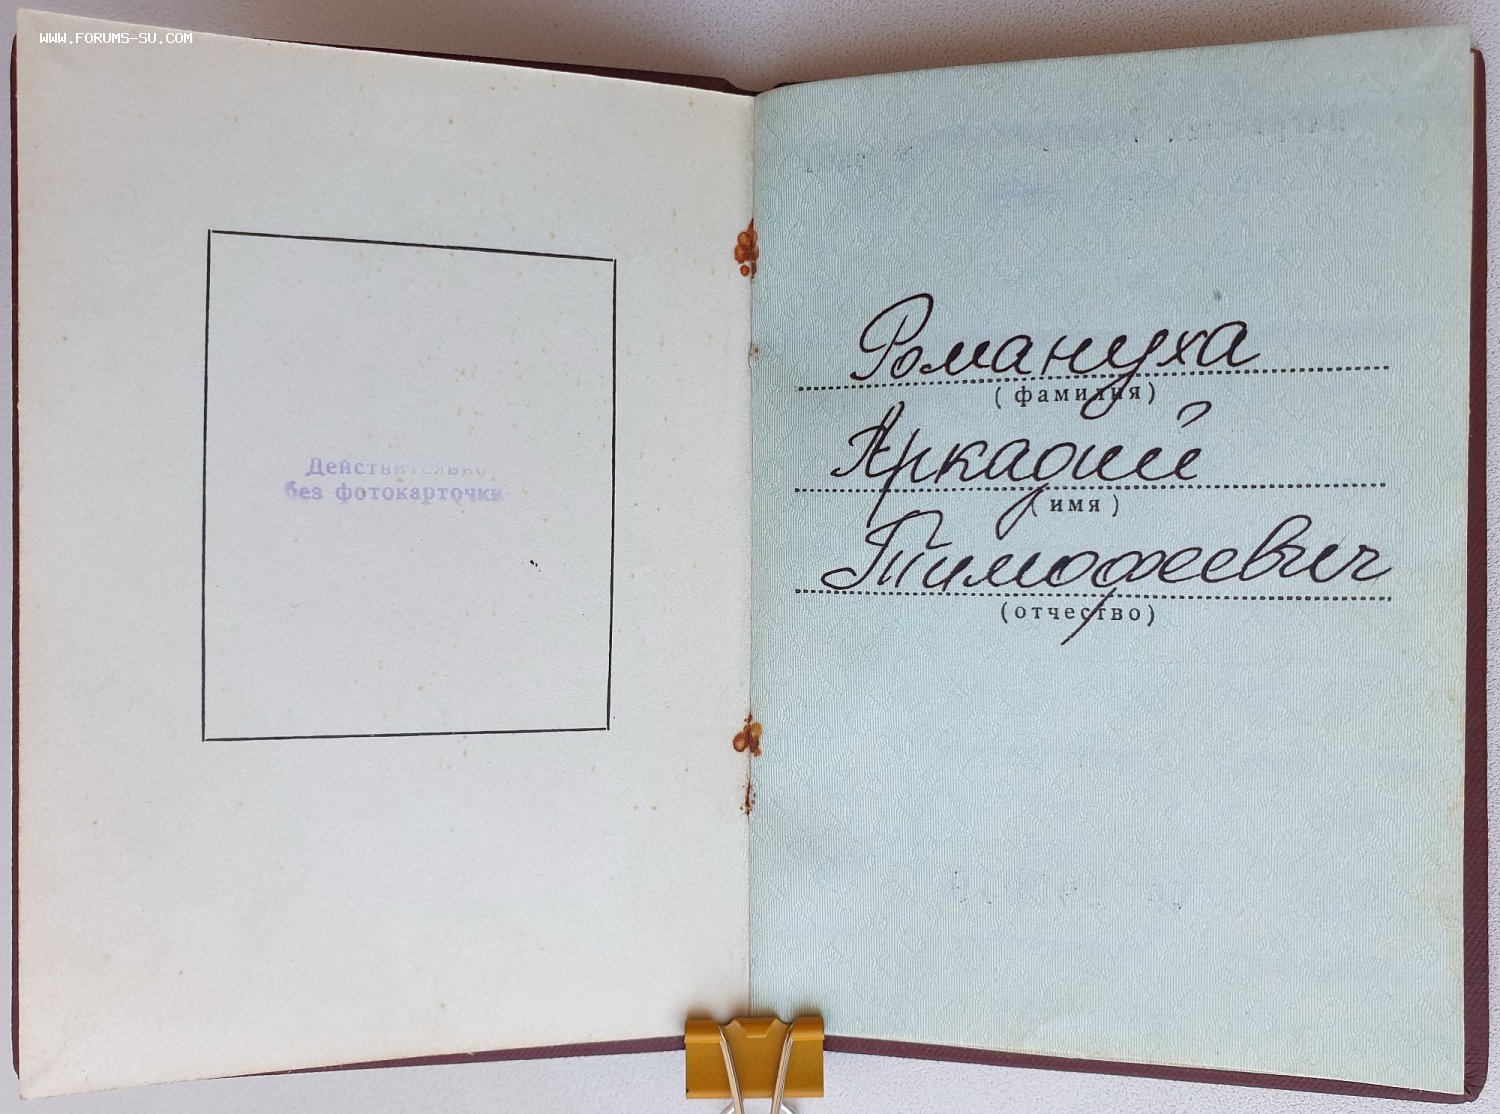 WWW.FORUMS-SU.COM
Действительно
без фотокарточки
Романуха
(фамилия)
Аркадий
(имя)
Тимофеевич
(отчество)